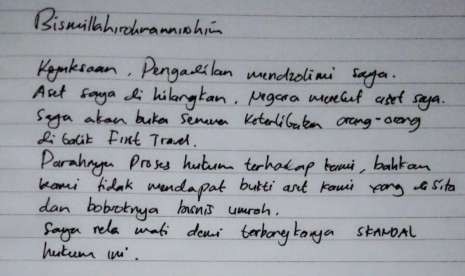 Bismillahirohmannirohim
Kejaksaan, Pengadilan mendzolimi saya.
Aset saya di hilangkan, Negara merebut aset saya.
Saya akan buka semua keterlibatan orang-orang
di balik First Travel.
Parahnya Proses hukum terhadap kami, bahkan
kami tidak mendapat bukti aset kami yang di sita
dan bobroknya bisnis umroh.
Saya rela mati demi terbongkarnya SKANDAL
hukum ini.